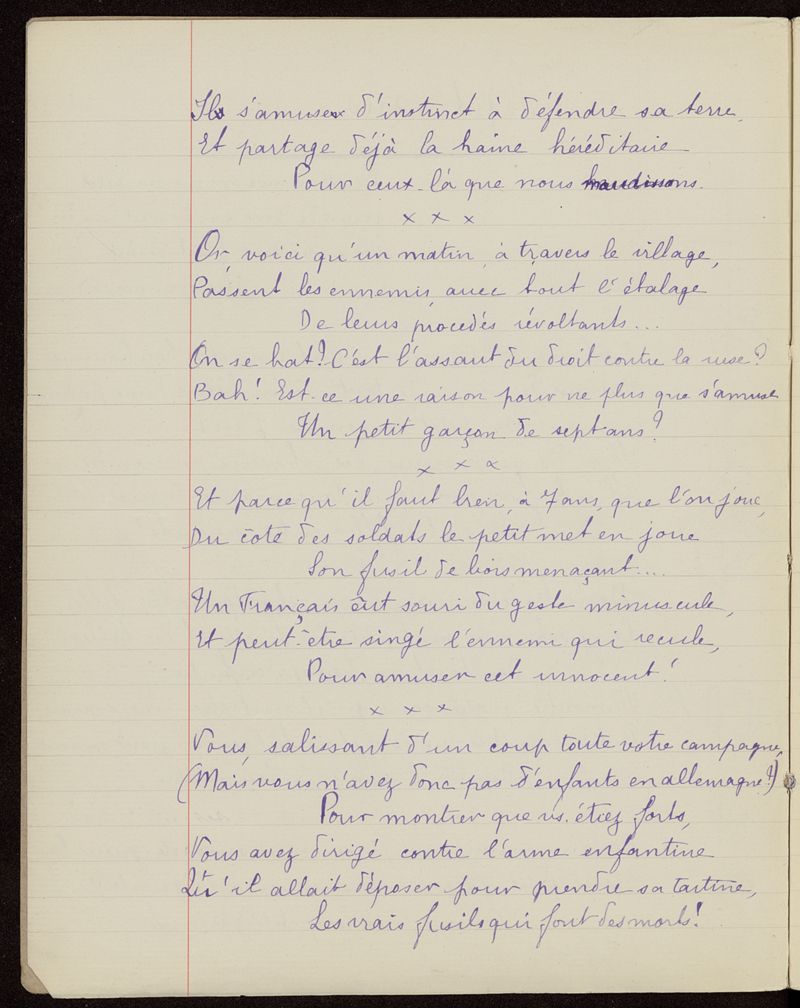 Ils s'amuse d'instinct à défendre sa terre,
Et partage déjà la haine héréditaire
Pour ceux-là que nous maudissons.
x x x
Or, voici qu'un matin, à travers le village,
Passent les ennemis, avec tout l'étalage
De leurs procédés révoltants...
On se bat? C'est l'assaut du droit contre la ruse?
Bah! Est-ce une raison pour ne plus que s'amuse
Un petit garçon de sept ans?
x x x
Et parce qu'il faut bien, à 7 ans, que l'on joue,
Du côté des soldats le petit met en joue
Son fusil de bois menaçant....
Un Français eût souri du geste minuscule,
Et peut-être singé l'ennemi qui recule,
Pour amuser cet innocent!
x x x
Vous, salissant d'un coup toute votre campagne,
(Mais vous n'avez donc pas d'enfants en allemagne?)
Pour montrer que vs. étiez forts,
Vous avez dirigé contre l'arme enfantine
Qu'il allait déposer pour prendre sa tartine,
Les vrais fusils qui font des morts!